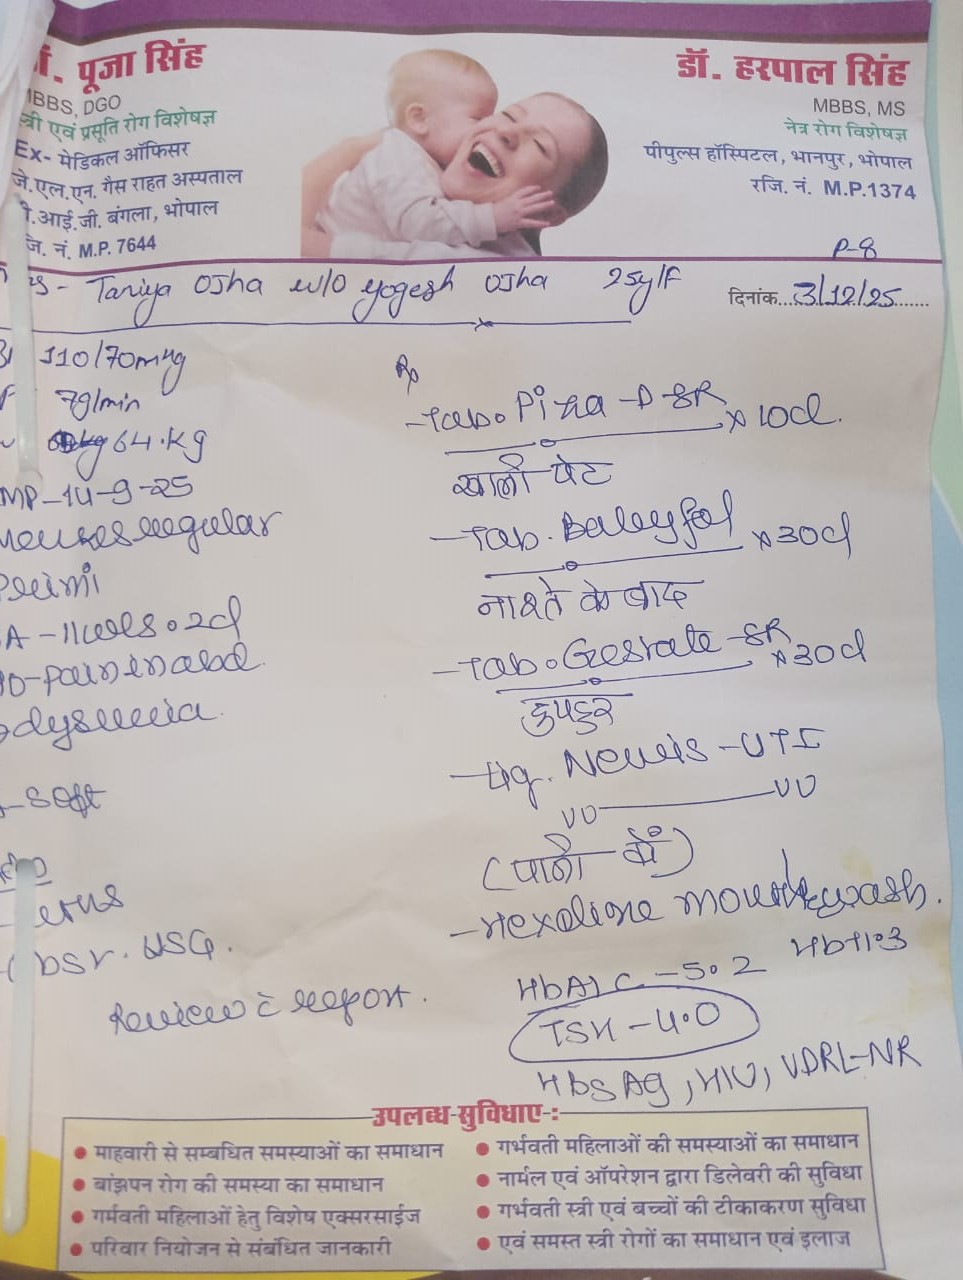 डॉ. पूजा सिंह
MBBS, DGO
स्त्री एवं प्रसूति रोग विशेषज्ञ
Ex- मेडिकल ऑफिसर
जे.एल.एन. गैस राहत अस्पताल
आई.जी. बंगला, भोपाल
M.P. 7644
डॉ. हरपाल सिंह
MBBS, MS
नेत्र रोग विशेषज्ञ
पीपुल्स हॉस्पिटल, भानपुर, भोपाल
रजि. नं. M.P.1374
P-8
Taniya Ojha w/o Yogesh Ojha 25y/F
दिनांक...3/12/25......
110/70mmHg
79/min
64.kg
MP-14-9-25
Menses regular
Primi
A-11wks.2d
pain in abd
dysuria
soft
Obsr. USG.
Review c report.
Rp
-Tab. -D-SR x 10d.
खाली पेट
-Tab. x30d
नाश्ते के बाद
-Tab. Gestate-SR x30d
दुपहर
-UTI
UU UU
(पानी में)
-Hexoline mouthwash.
HbA1C-5.2 Hb11.3
TSH-4.0
HbsAg, HIV, VDRL-NR
उपलब्ध-सुविधाए-:
• माहवारी से सम्बधित समस्याओं का समाधान
• बांझपन रोग की समस्या का समाधान
• गर्मवती महिलाओं हेतु विशेष एक्सरसाईज
• परिवार नियोजन से संबंधित जानकारी
• गर्भवती महिलाओं की समस्याओं का समाधान
• नार्मल एवं ऑपरेशन द्वारा डिलेवरी की सुविधा
• गर्भवती स्त्री एवं बच्चों की टीकाकरण सुविधा
• एवं समस्त स्त्री रोगों का समाधान एवं इलाज